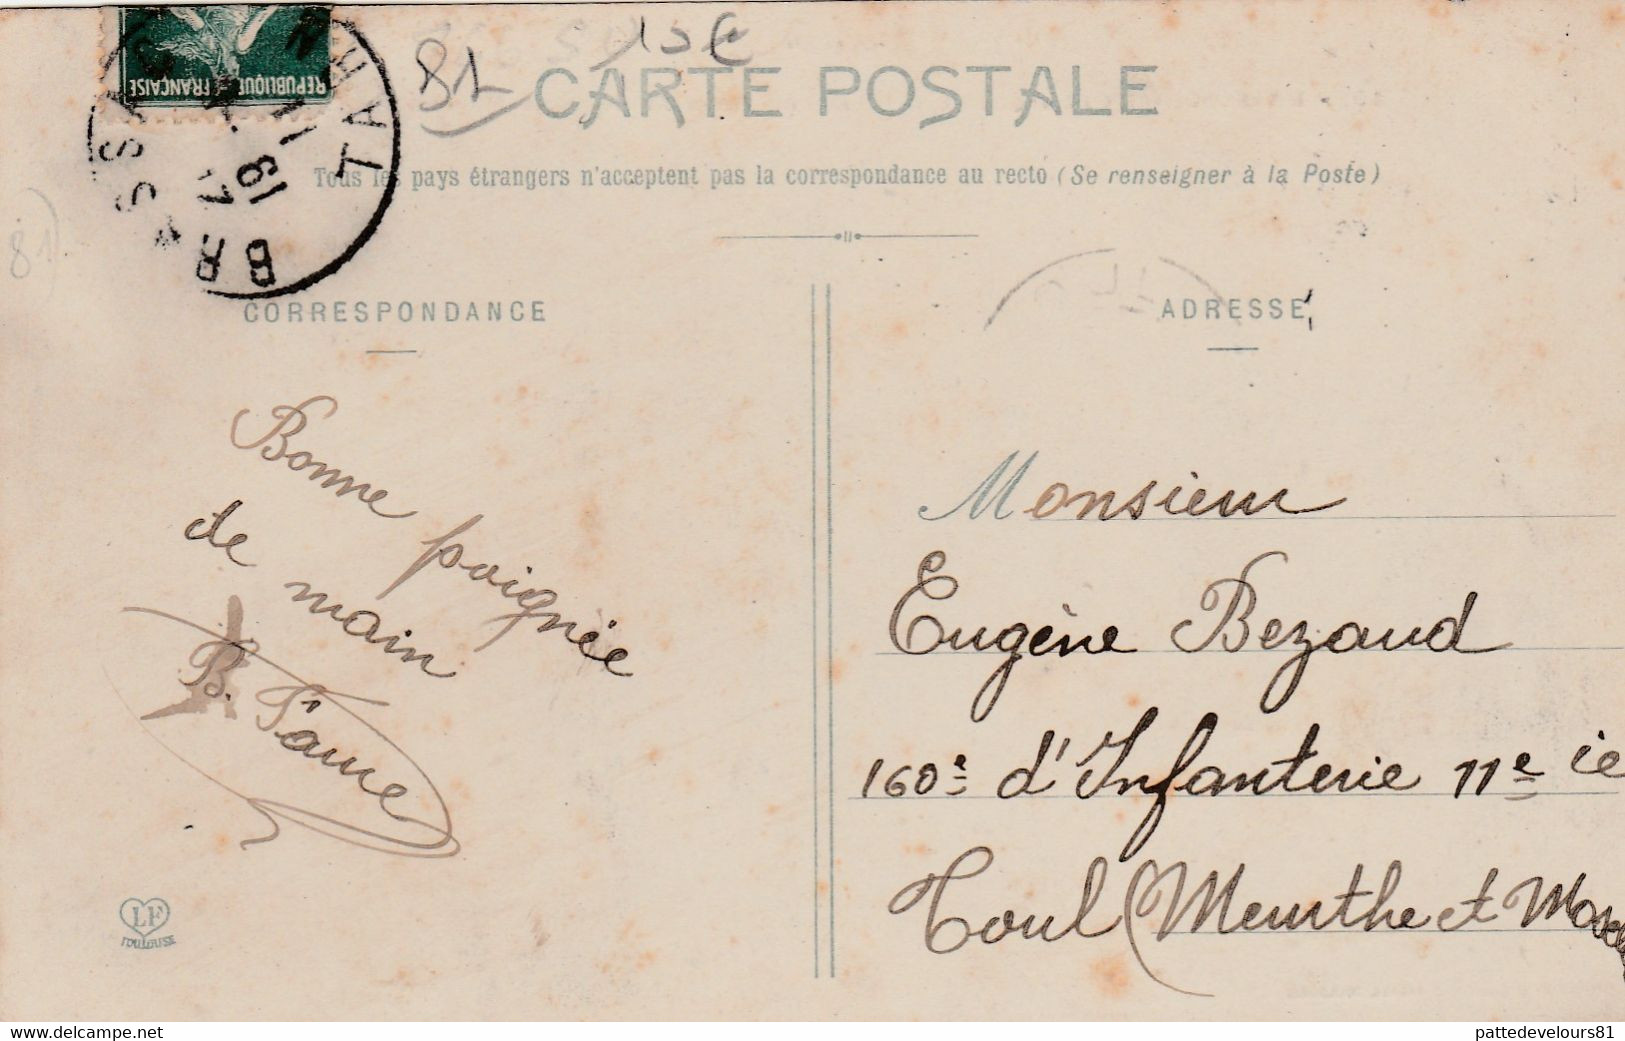 RÉPUBLIQUE FRANÇAISE
BRASSAC
TARN
19
11
81
10€
CARTE POSTALE
Tous les pays étrangers n'acceptent pas la correspondance au recto (Se renseigner à la Poste)
81
CORRESPONDANCE
ADRESSE
Bonne poignée
de main
B.
Monsieur
Eugène Bezaud
160e d'Infanterie 11e Cie
Toul (Meurthe et Moselle
LF
TOULOUSE
Delcampe.net
pattedevelours81